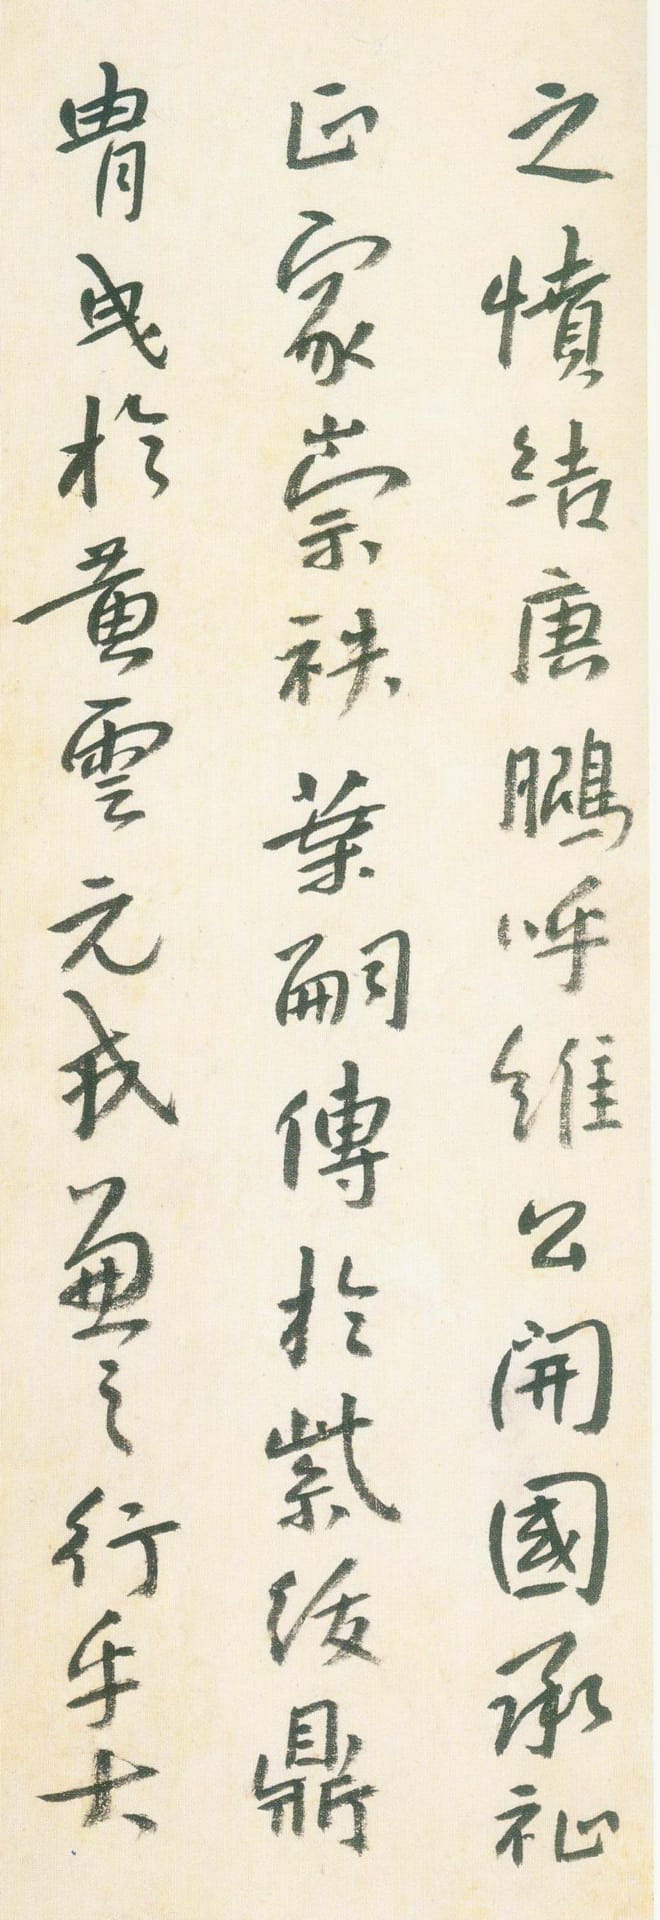 之憤結唐鵬呼維公開國承祉
正家崇袟葉嗣傳於紫綬鼎
胄曳於黃雲元戎
之行乎大